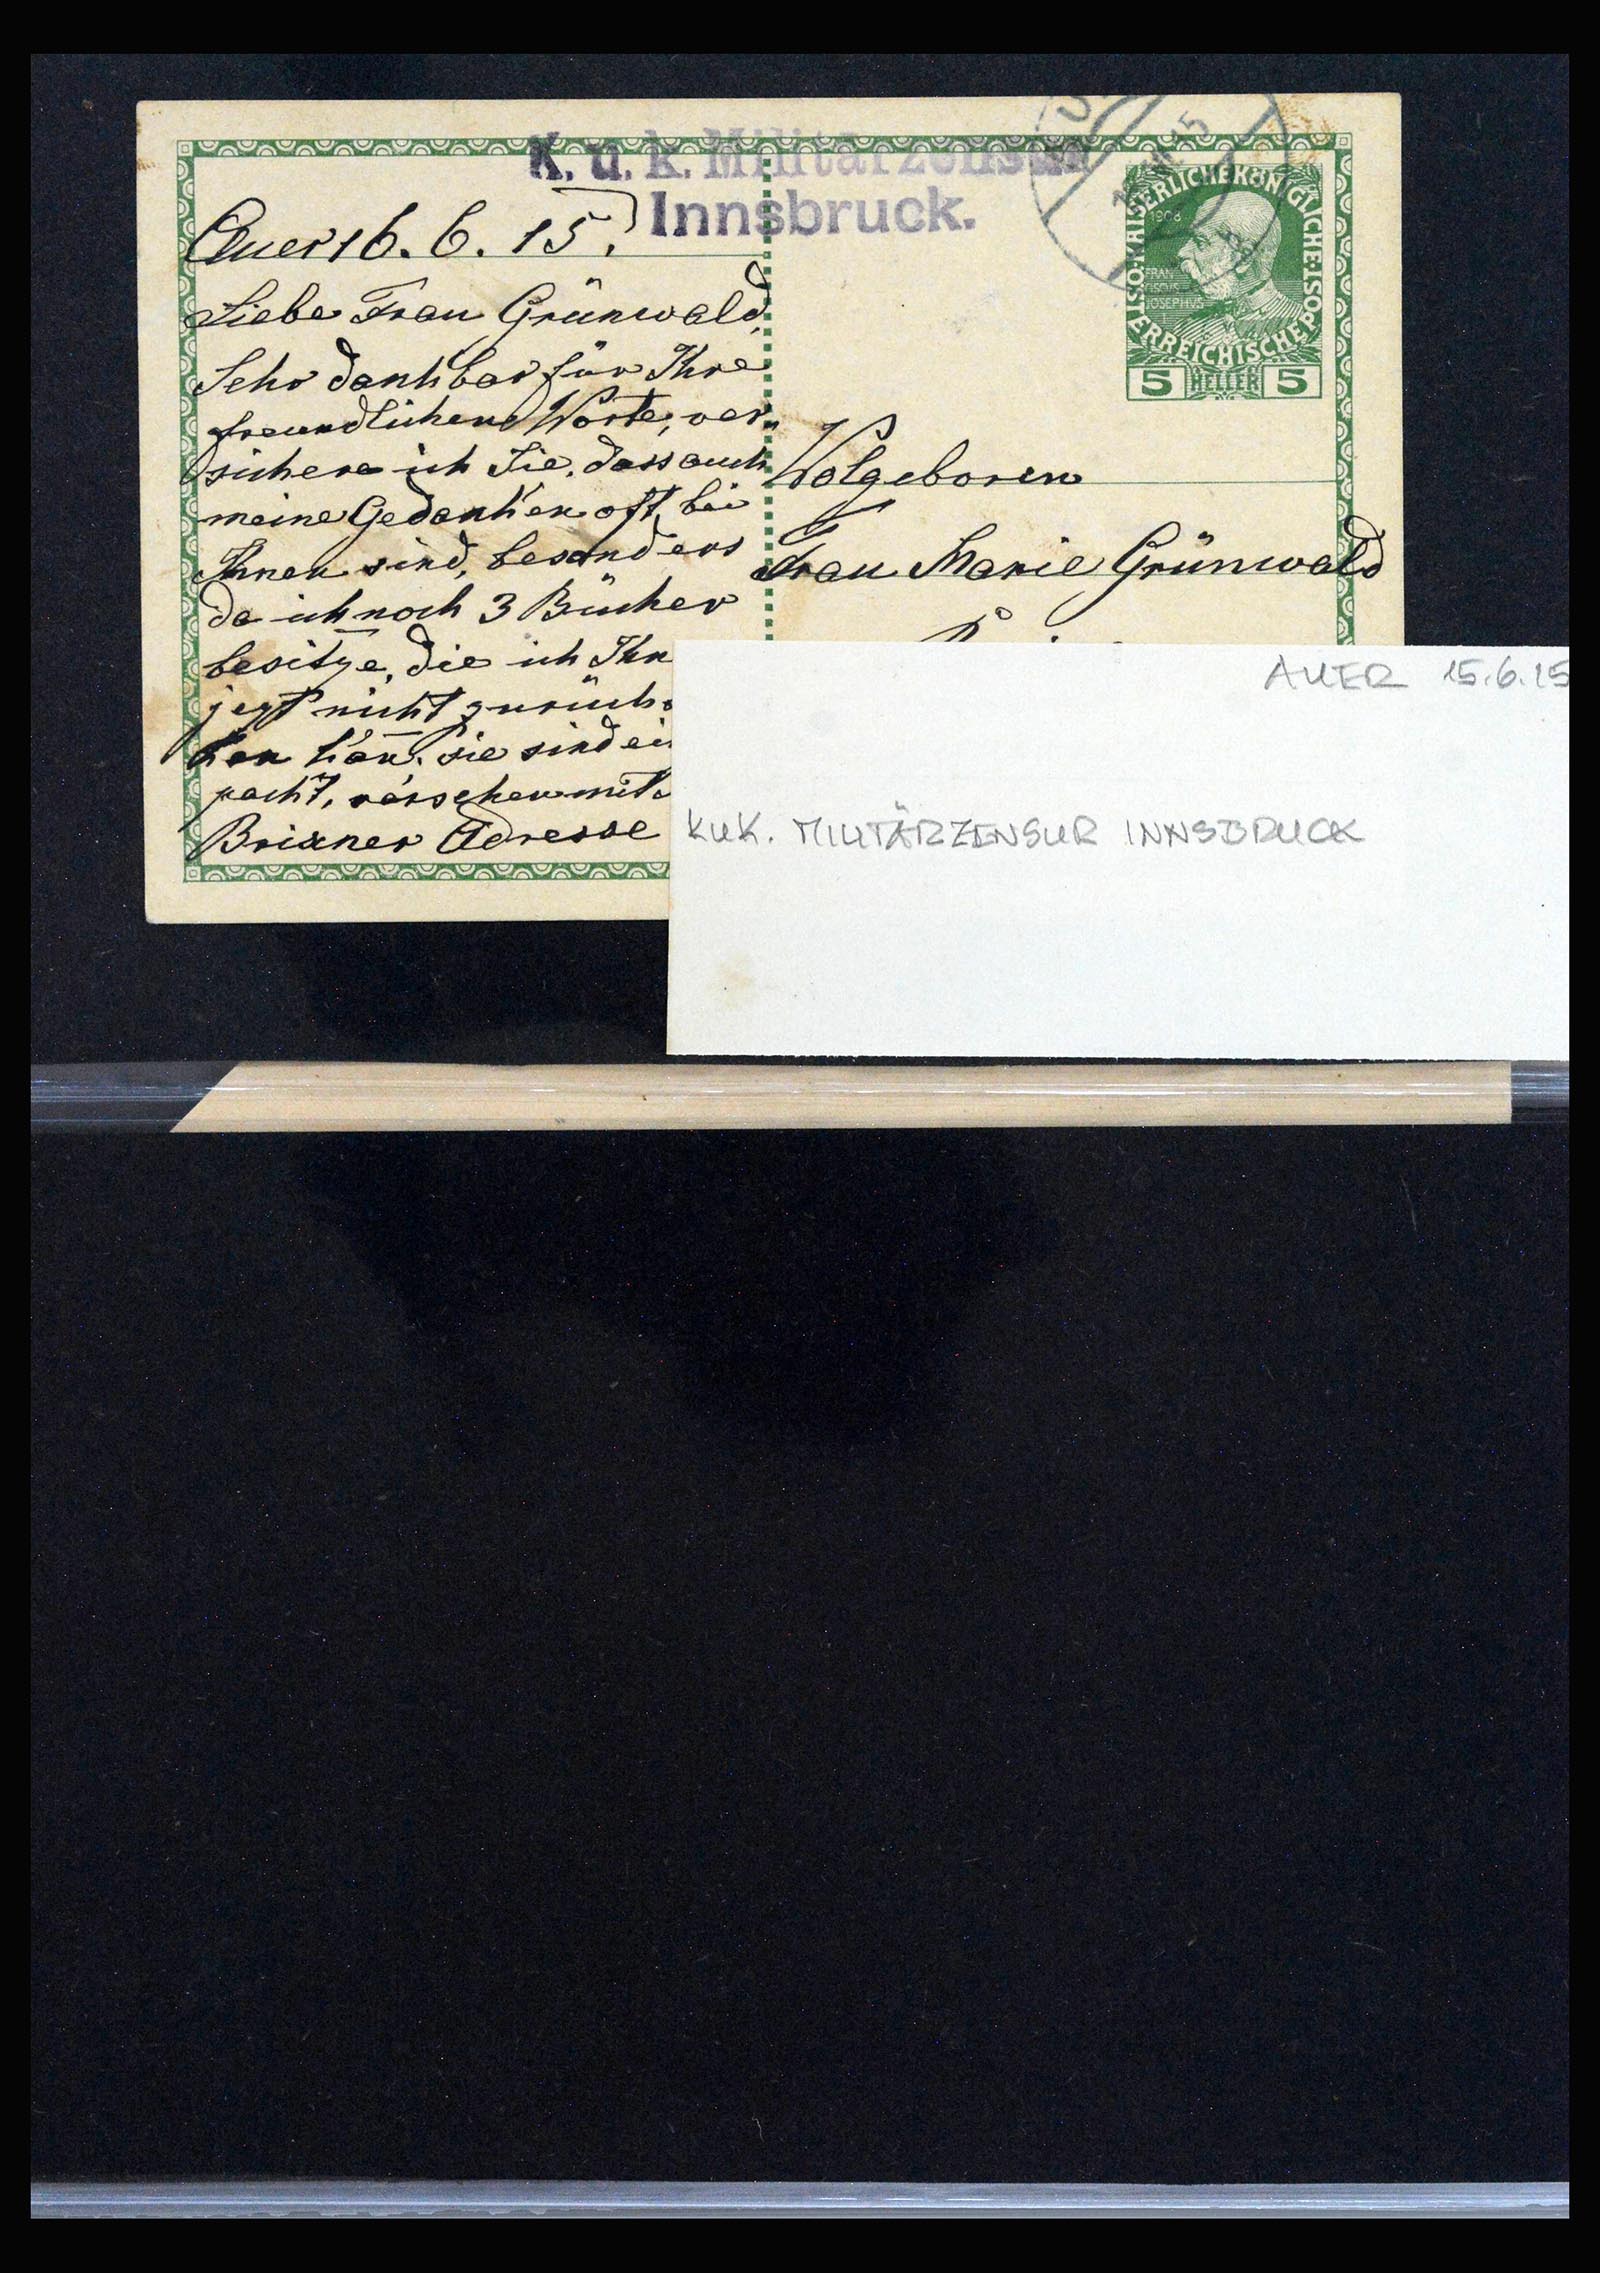 K. u. k. Militärzensur
Innsbruck.
Auer 16. 6. 15.
Liebe Frau Grünwald,
Sehr dankbar für Ihre
freundlichen Worte, ver-
sichere ich Sie, dass auch
meine Gedanken oft bei
Ihnen sind, besonders
da ich noch 3 Bücher
besitze, die ich Ihn
jezt nicht zurück
ken kan̅. sie sind ein
packt, versehen mit
Brixner Adresse
15
KAISERLICHE KÖNIGLICHE ÖSTERREICHISCHE POST
1908
FRAN
CISCVS
JOSEPHVS
5 HELLER 5
Wolgeboren
Frau Marie Grünwald
AUER 15.6.15
KUK. MILITÄRZENSUR INNSBRUCK